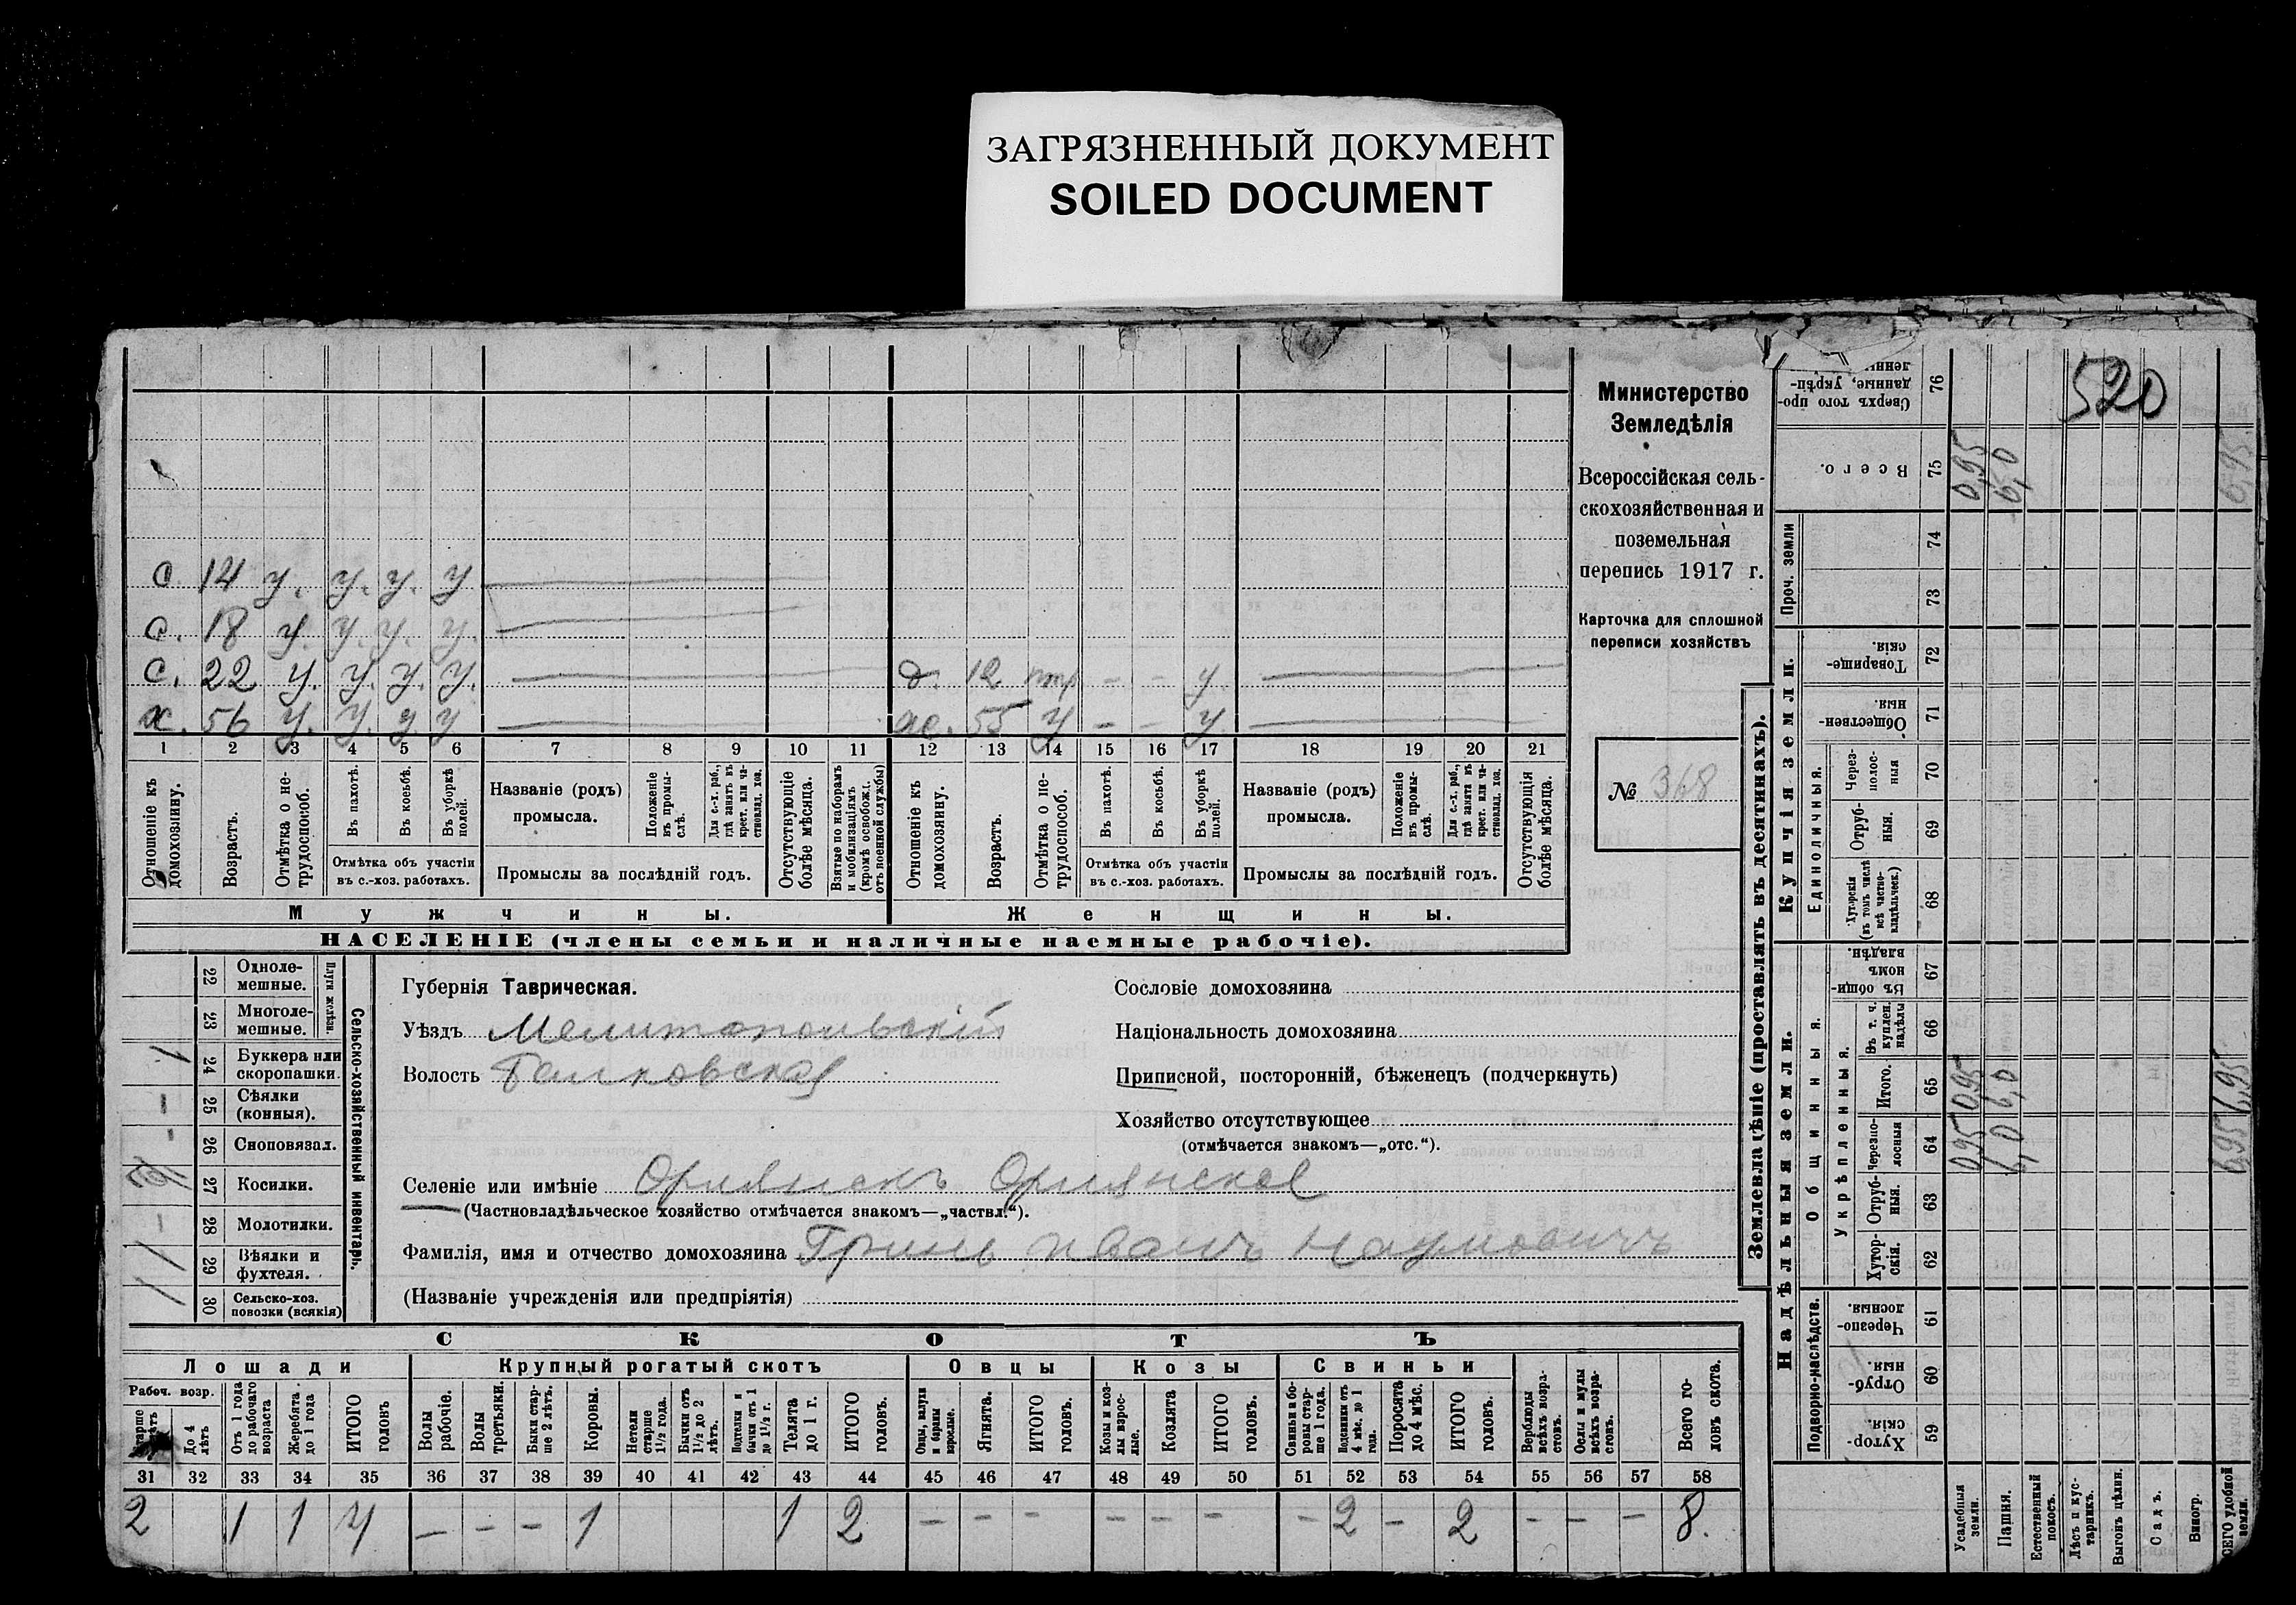 ЗАГРЯЗНЕННЫЙ ДОКУМЕНТ
SOILED DOCUMENT
с 14 у. у. у. у
с. 18 у. у. у. у.
с. 22 у. у. у. у. д. 12 - - у.
х. 56 у. у. у у ж. 55 у - - у.
1 2 3 4 5 6 7 8 9 10 11 12 13 14 15 16 17 18 19 20 21
Отношеніе къ домохозяину.
Возрастъ.
Отмѣтка о нетрудоспособ.
Въ пахотѣ.
Въ косьбѣ.
Въ уборкѣ полей.
Отмѣтка объ участіи
въ с.-хоз. работахъ.
Названіе (родъ)
промысла.
Положеніе въ промыслѣ.
Для с.-х. раб., гдѣ занятъ въ крест. или частновлад. хоз.
Промыслы за послѣдній годъ.
Отсутствующіе болѣе мѣсяца.
Взятые по наборамъ и мобилизаціямъ (кромѣ освобожд. отъ военной службы)
Отношеніе къ домохозяину.
Возрастъ.
Отмѣтка о нетрудоспособ.
Въ пахотѣ.
Въ косьбѣ.
Въ уборкѣ полей.
Отмѣтка объ участіи
въ с.-хоз. работахъ.
Названіе (родъ)
промысла.
Положеніе въ промыслѣ.
Для с.-х. раб., гдѣ занята въ крест. или частновлад. хоз.
Промыслы за послѣдній годъ.
Отсутствующія болѣе мѣсяца.
Мужчины.
Женщины.
НАСЕЛЕНІЕ (члены семьи и наличные наемные рабочіе).
Министерство
Земледѣлія
Всероссійская сель-
скохозяйственная и
поземельная
перепись 1917 г.
Карточка для сплошной
переписи хозяйствъ
№ 368
22 Одноле-
мешные.
23 Многоле-
мешные.
Плуги желѣзн.
24 Буккера или
скоропашки. 1
25 Сѣялки
(конныя). -
26 Сноповязал. -
27 Косилки.
28 Молотилки. -
29 Вѣялки и
фухтеля. 1
30 Сельско-хоз.
повозки (всякія) 1
Сельско-хозяйственный инвентарь.
Губернія Таврическая.
Уѣздъ Мелитопольскій
Волость Балковская
Сословіе домохозяина
Національность домохозяина
Приписной, посторонній, бѣженецъ (подчеркнуть)
Хозяйство отсутствующее
(отмѣчается знакомъ—„отс.“).
Селеніе или имѣніе Орлянскъ Орлянское
(Частновладѣльческое хозяйство отмѣчается знакомъ—„частвл.“).
Фамилія, имя и отчество домохозяина Гринь Иванъ Наумовичъ
(Названіе учрежденія или предпріятія)
СКОТЪ
Лошади Крупный рогатый скотъ Овцы Козы Свиньи
Рабоч. возр.
старше 4 лѣтъ
До 4 лѣтъ
Отъ 1 года до рабочаго возраста
Жеребята до 1 года
ИТОГО головъ
Волы рабочіе.
Волы третьяки.
Быки старше 2 лѣтъ.
Коровы.
Нетели старше 1½ года.
Бычки отъ 1½ до 2 лѣтъ.
Подтелки и бычки отъ 1 до 1½ г.
Телята до 1 г.
ИТОГО головъ.
Овцы, валухи и бараны взрослые.
Ягнята.
ИТОГО головъ.
Козы и козлы взрослые.
Козлята
ИТОГО головъ.
Свиньи и боровы старше 1 года.
Подсвинки отъ 4 мѣс. до 1 года.
Поросята до 4 мѣс.
ИТОГО головъ.
Верблюды всѣхъ возрастовъ.
Ослы и мулы всѣхъ возрастовъ.
Всего головъ скота.
31 32 33 34 35 36 37 38 39 40 41 42 43 44 45 46 47 48 49 50 51 52 53 54 55 56 57 58
2 1 1 4 - - - 1 1 2 - - - - - - - 2 - 2 - - - 8.
Землевладѣніе (проставлять въ десятинахъ).
Надѣльныя земли.
Купчія земли.
Проч. земли
Подворно-наслѣдств.
Общинныя.
Укрѣпленныя.
Единоличныя.
Хуторскія. 59
Отрубныя. 60
Черезполосныя. 61
Хуторскія. 62
Отрубныя. 63
Черезполосныя 64
Итого. 65
Въ т. ч. куплен. надѣлы 66
Въ общинномъ владѣн. 67
Хуторскія (въ томъ числѣ всѣ частновладѣльческ.) 68
Отрубныя. 69
Черезполосныя 70
Общественныя. 71
Товарищескія. 72
73
74
Всего. 75
Сверхъ того проданные, укрѣпленны 76
520
Усадебныя земли. 0,95 0,95 0,95
Пашня. 6,0 6,0 6,0
Естественный покосъ.
Лѣсъ и кустарникъ.
Выгонъ цѣлин.
Садъ.
Виногр.
ВСЕГО удобной земли. 6,95 6,95 6,95